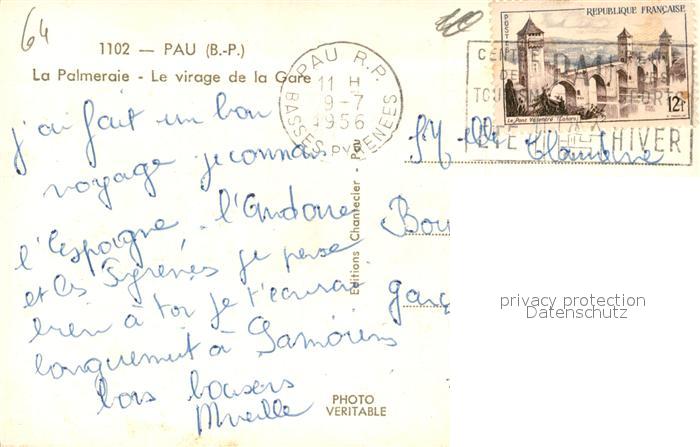 64
1102 — PAU (B.-P.)
La Palmeraie - Le virage de la Gare
PAU R.P.
11 H
9-7
1956
BASSES PYRENEES
REPUBLIQUE FRANÇAISE
POSTES
12F
Le Pont Valentré (Cahors)
CENTRE
TOURISME
ETE HIVER
j'ai fait un bon
voyage je connais
l'Espagne. l'Andorre
et les Pyrénées je pense
bien à toi je t'écrirai
longuement à
bons baisers
Mireille
Melle Claudine
Bou
Garç
Editions Chantecler - Pau
PHOTO
VERITABLE
privacy protection
Datenschutz